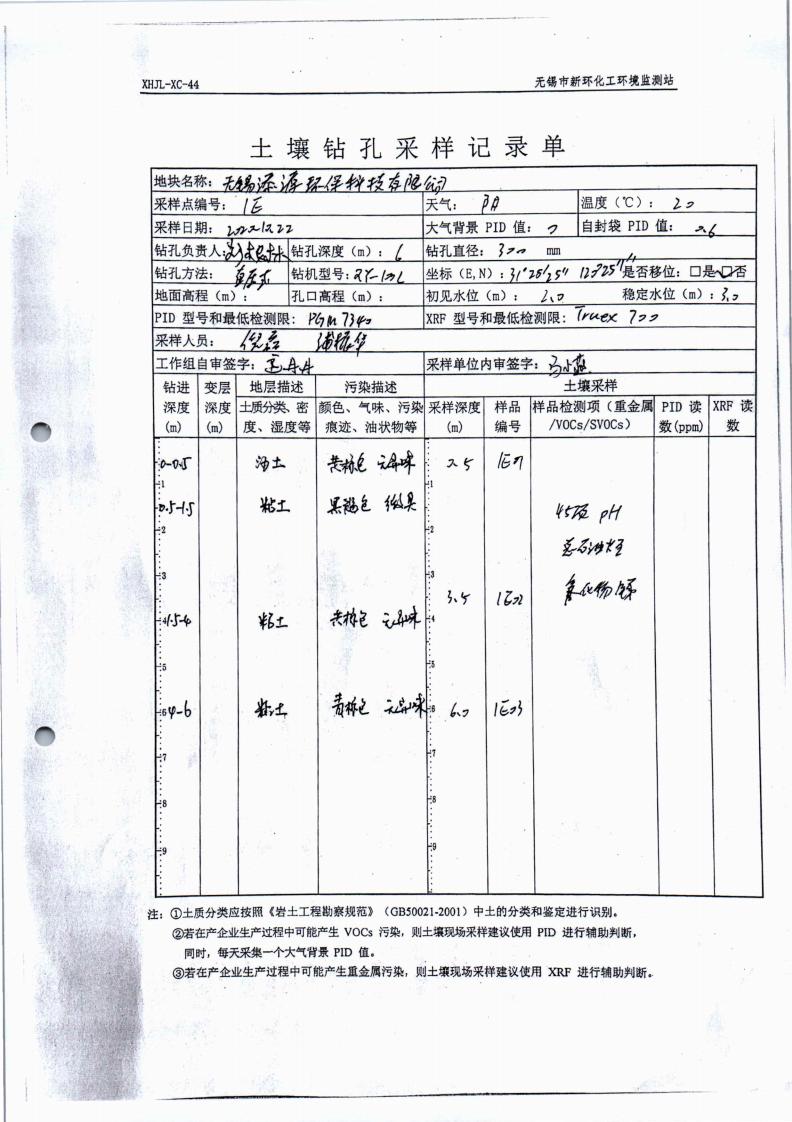 XHJL-XC-44 无锡市新环化工环境监测站
土壤钻孔采样记录单
地块名称：无锡添源环保科技有限公司
采样点编号：1E 天气：阴 温度（℃）：20
采样日期：2022.12.22 大气背景 PID 值：0 自封袋 PID 值：0.6
钻孔负责人： 钻孔深度（m）：6 钻孔直径：300 mm
钻孔方法：直压式 钻机型号：RY-100L 坐标（E,N）：31°28'25" 120°25'11" 是否移位：□是 ☑否
地面高程（m）： 孔口高程（m）： 初见水位（m）：2.0 稳定水位（m）：3.0
PID 型号和最低检测限：PGM7340 XRF 型号和最低检测限：Truex 700
采样人员：倪磊 浦振华
工作组自审签字： 采样单位内审签字：马小燕
钻进 变层 地层描述 污染描述 土壤采样
深度 深度 土质分类、密 颜色、气味、污染 采样深度 样品 样品检测项（重金属 PID 读 XRF 读
(m) (m) 度、湿度等 痕迹、油状物等 (m) 编号 /VOCs/SVOCs） 数(ppm) 数
0-0.5 黄棕色 无异味 0.5 1E01
1 1
0.5-1.5 粘土 黑褐色 45项 pH
2 2
总石油烃
3 3
氟化物 锑
3.5 1E02
4 1.5-4 粘土 黄棕色 无异味 4
5 5
6 4-6 粘土 青棕色 无异味 6 6.0 1E03
7 7
8 8
9 9
注：①土质分类应按照《岩土工程勘察规范》（GB50021-2001）中土的分类和鉴定进行识别。
②若在产企业生产过程中可能产生 VOCs 污染，则土壤现场采样建议使用 PID 进行辅助判断，
同时，每天采集一个大气背景 PID 值。
③若在产企业生产过程中可能产生重金属污染，则土壤现场采样建议使用 XRF 进行辅助判断。